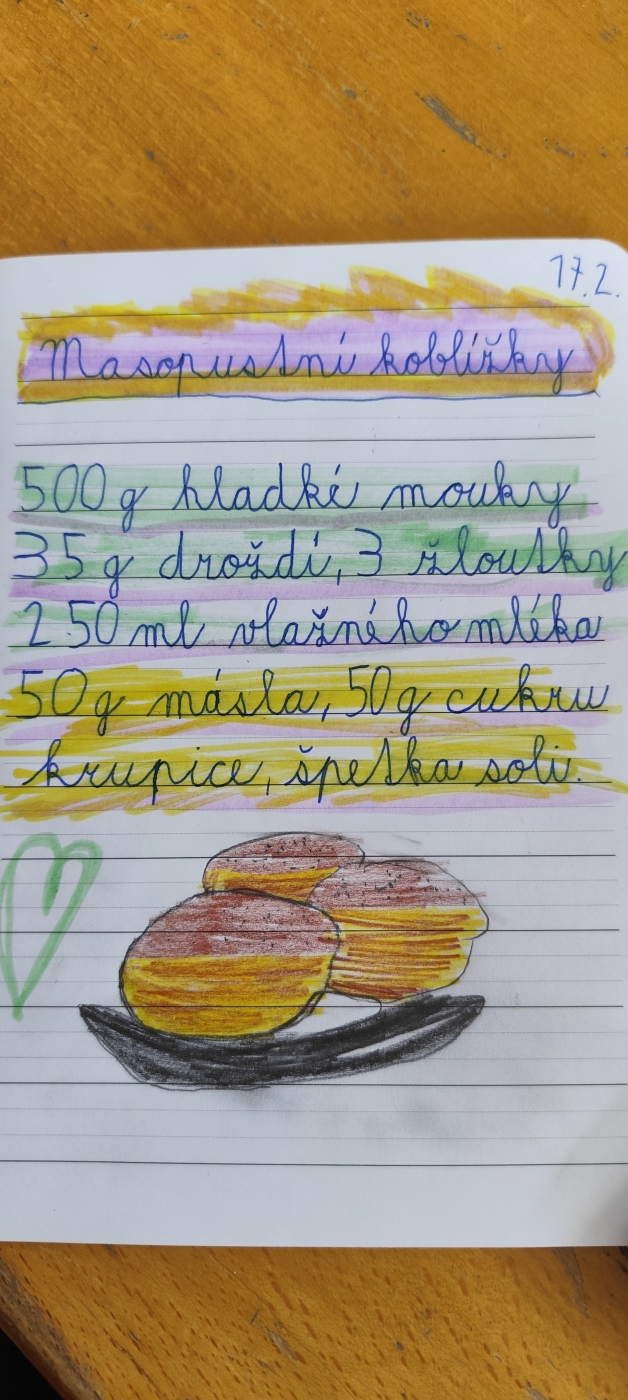 17.2.
Masopustní koblížky
500 g hladké mouky
35 g droždí, 3 žloutky
250 ml vlažného mléka
50 g másla, 50 g cukru
krupice, špetka soli.